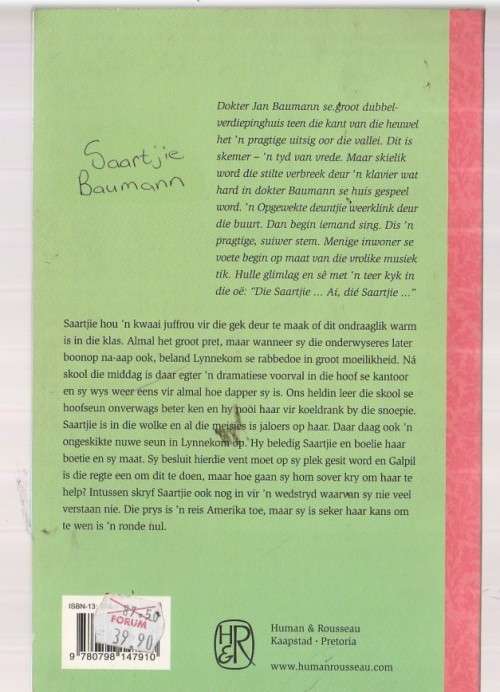 Saartjie
Baumann
Dokter Jan Baumann se groot dubbel-
verdiepinghuis teen die kant van die heuwel
het 'n pragtige uitsig oor die vallei. Dit is
skemer – 'n tyd van vrede. Maar skielik
word die stilte verbreek deur 'n klavier wat
hard in dokter Baumann se huis gespeel
word. 'n Opgewekte deuntjie weerklink deur
die buurt. Dan begin iemand sing. Dis 'n
pragtige, suiwer stem. Menige inwoner se
voete begin op maat van die vrolike musiek
tik. Hulle glimlag en sê met 'n teer kyk in
die oë: "Die Saartjie ... Ai, dié Saartjie ..."
Saartjie hou 'n kwaai juffrou vir die gek deur te maak of dit ondraaglik warm
is in die klas. Almal het groot pret, maar wanneer sy die onderwyseres later
boonop na-aap ook, beland Lynnekom se rabbedoe in groot moeilikheid. Ná
skool die middag is daar egter 'n dramatiese voorval in die hoof se kantoor
en sy wys weer eens vir almal hoe dapper sy is. Ons heldin leer die skool se
hoofseun onverwags beter ken en hy nooi haar vir koeldrank by die snoepie.
Saartjie is in die wolke en al die meisies is jaloers op haar. Daar daag ook 'n
ongeskikte nuwe seun in Lynnekom op. Hy beledig Saartjie en boelie haar
boetie en sy maat. Sy besluit hierdie vent moet op sy plek gesit word en Galpil
is die regte een om dit te doen, maar hoe gaan sy hom sover kry om haar te
help? Intussen skryf Saartjie ook nog in vir 'n wedstryd waarvan sy nie veel
verstaan nie. Die prys is 'n reis Amerika toe, maar sy is seker haar kans om
te wen is 'n ronde nul.
ISBN-13
87.50
FORUM
39.90
9 780798 147910
H&R
Human & Rousseau
Kaapstad · Pretoria
www.humanrousseau.com